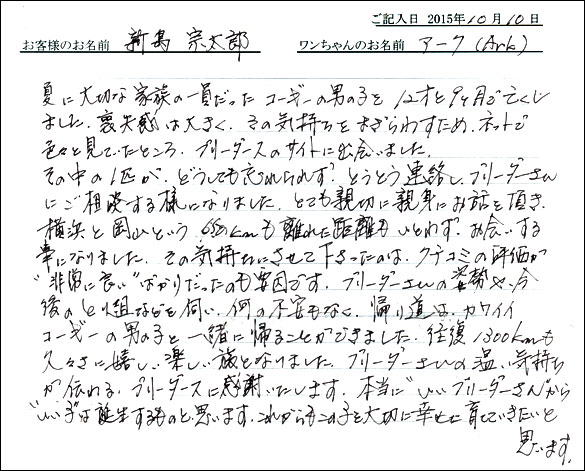 ご記入日 2015年10月10日
お客様のお名前 新島 宗太郎 ワンちゃんのお名前 アーク(Ark)
夏に大切な家族の一員だったコーギーの男の子を12才と9ヶ月で亡くし
ました。喪失感は大きく、その気持ちをまぎらわすため、ネットで
色々と見ていたところ、ブリーダースのサイトに出会いました。
その中の1匹が、どうしても忘れられず、とうとう連絡し、ブリーダーさん
にご相談する様になりました。とても親切に親身にお話を頂き、
横浜と岡山という、650kmも離れた距離もいとわず、お会いする
事になりました。その気持ちにさせて下さったのは、クチコミの評価が
"非常に良い"ばかりだったのも要因です。ブリーダーさんの姿勢や、今
後のとり組などを伺い、何の不安もなく、帰り道は、カワイイ
コーギーの男の子と一緒に帰ることができました。往復1300kmも
久々に嬉しい楽しい旅となりました。ブリーダーさんの温い気持ち
が伝わる、ブリーダースに感謝いたします。本当に"いいブリーダーさん"から
"いい子"は誕生するものと思います。これからもこの子を大切に幸せに育てていきたいと
思います。